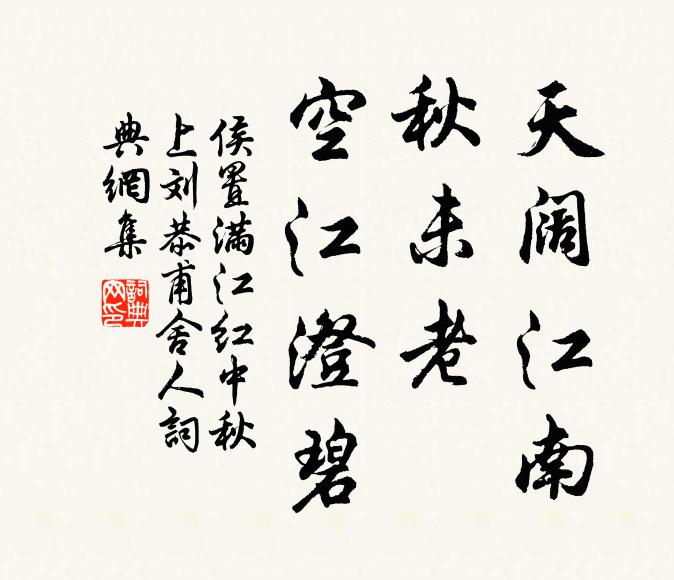 天阔江南
秋未老
空江澄碧
侯置满江红中秋
上刘恭甫舍人詞
典網集
詞典
网印